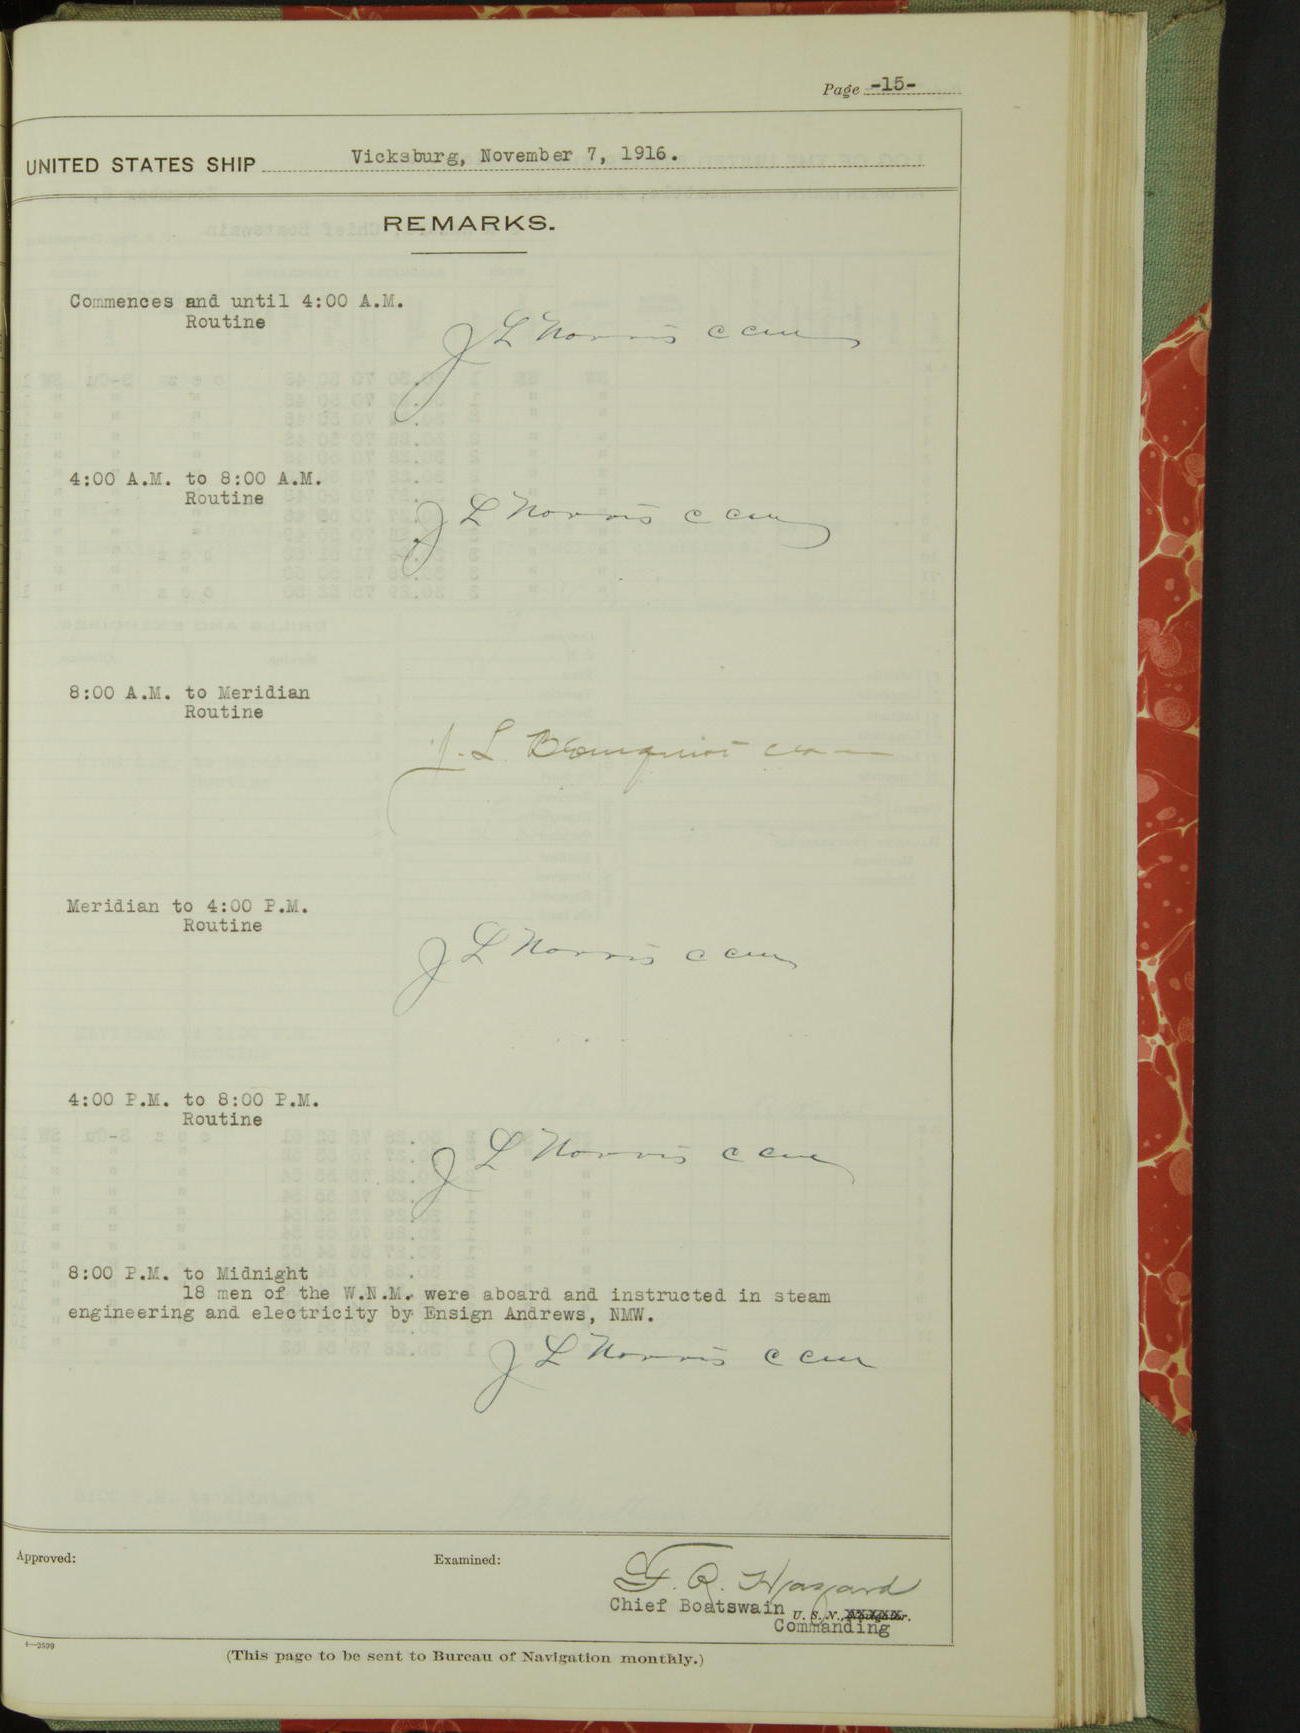 Page -15-
UNITED STATES SHIP Vicksburg, November 7, 1916.
REMARKS.
Commences and until 4:00 A.M.
Routine
J L Norris c cm
4:00 A.M. to 8:00 A.M.
Routine
J L Norris c cm
8:00 A.M. to Meridian
Routine
J. L.
Meridian to 4:00 P.M.
Routine
J L Norris c cm
4:00 P.M. to 8:00 P.M.
Routine
J L Norris c cm
8:00 P.M. to Midnight
18 men of the W.N.M. were aboard and instructed in steam
engineering and electricity by Ensign Andrews, NMW.
J L Norris c cm
Approved:
Examined:
F. R. Hazard
Chief Boatswain U. S. N.,
Commanding
4—2599
(This page to be sent to Bureau of Navigation monthly.)